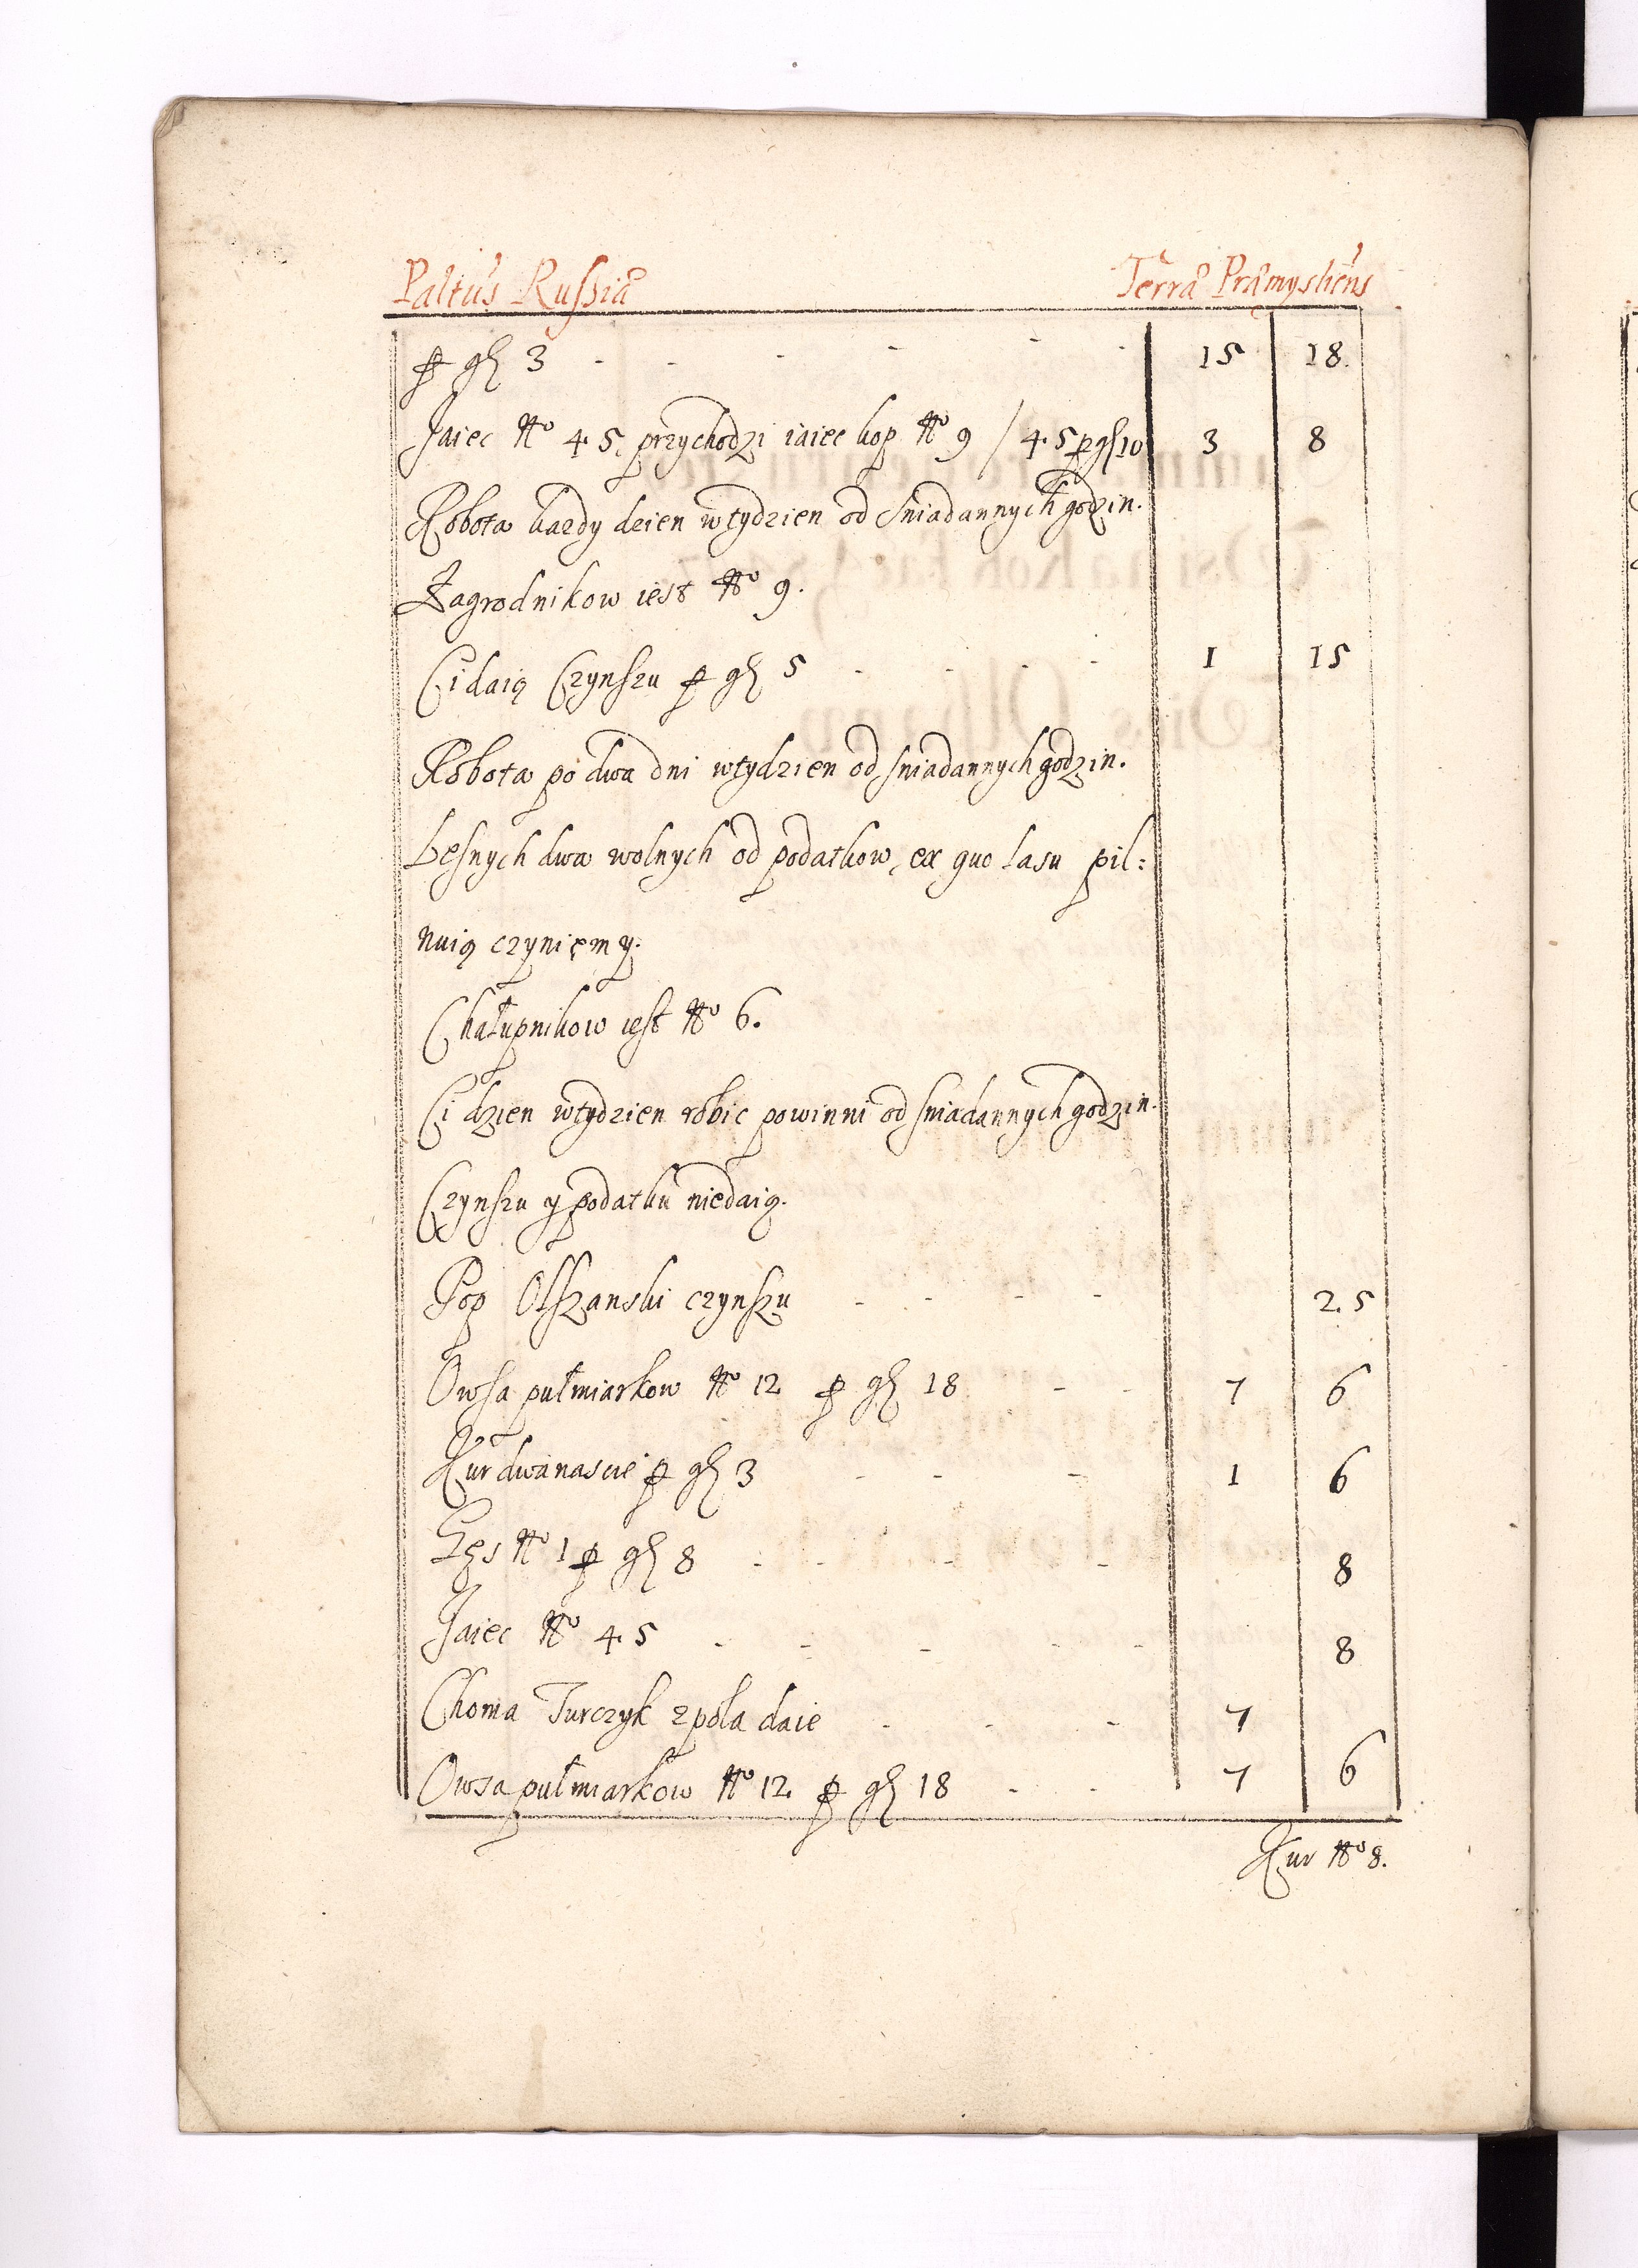 Paltus Russiæ Terræ Præmysliens
p gr 3 - - - - - - 15 18.
Jaiec No 45. przychodzi iaiec kop No 9 / 45 p gr 10 3 8
Robota kazdy dzien wtydzien od sniadannych godzin.
Zagrodnikow iest No 9.
Ci daią Czynszu p gr 5 - - - - 1 15
Robota po dwa dni wtydzien od sniadannych godzin.
Lesnych dwa wolnych od podatkow, ex quo lasu pil:
nuią czyniemy.
Chałupnikow iest No 6.
Ci dzien wtydzien robic powinni od sniadannych godzin.
Czynszu y podatku niedaią.
Pop Olszanski czynszu - - - - 25
Owsa pułmiarkow No 12 p gr 18 - - 7 6
Kur dwanascie p gr 3 - - - 1 6
Gęs No 1 p gr 8 - - - - 8
Jaiec No 45 - - - - - 8
Choma Turczyk z pola daie - - - 7
Owsa pułmiarkow No 12 p gr 18 - - 7 6
Kur No 8.